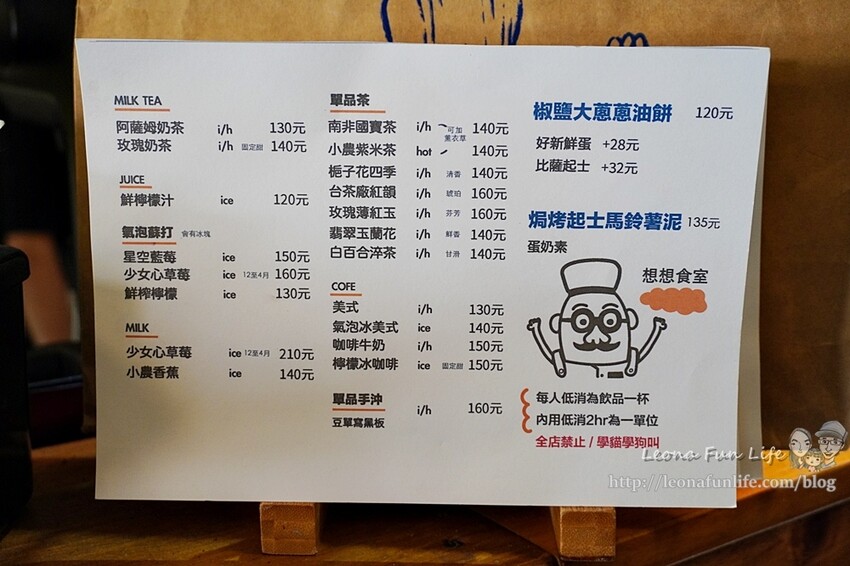 MILK TEA
阿薩姆奶茶 i/h 130元
玫瑰奶茶 i/h 固定甜 140元
JUICE
鮮檸檬汁 ice 120元
氣泡蘇打 會有冰塊
星空藍莓 ice 150元
少女心草莓 ice 12至4月 160元
鮮榨檸檬 ice 130元
MILK
少女心草莓 ice 12至4月 210元
小農香蕉 ice 140元
單品茶
南非國寶茶 i/h 可加薰衣草 140元
小農紫米茶 hot 140元
梔子花四季 i/h 清香 140元
台茶廠紅韻 i/h 琥珀 160元
玫瑰薄紅玉 i/h 芬芳 160元
翡翠玉蘭花 i/h 鮮香 140元
白百合淬茶 i/h 甘滑 140元
COFE
美式 i/h 130元
氣泡冰美式 ice 140元
咖啡牛奶 i/h 150元
檸檬冰咖啡 ice 固定甜 150元
單品手沖 i/h 160元
豆單寫黑板
椒鹽大蔥蔥油餅 120元
好新鮮蛋 +28元
比薩起士 +32元
焗烤起士馬鈴薯泥 135元
蛋奶素
想想食室
每人低消為飲品一杯
內用低消2hr為一單位
全店禁止 / 學貓學狗叫
Leona Fun Life
http://leonafunlife.com/blog